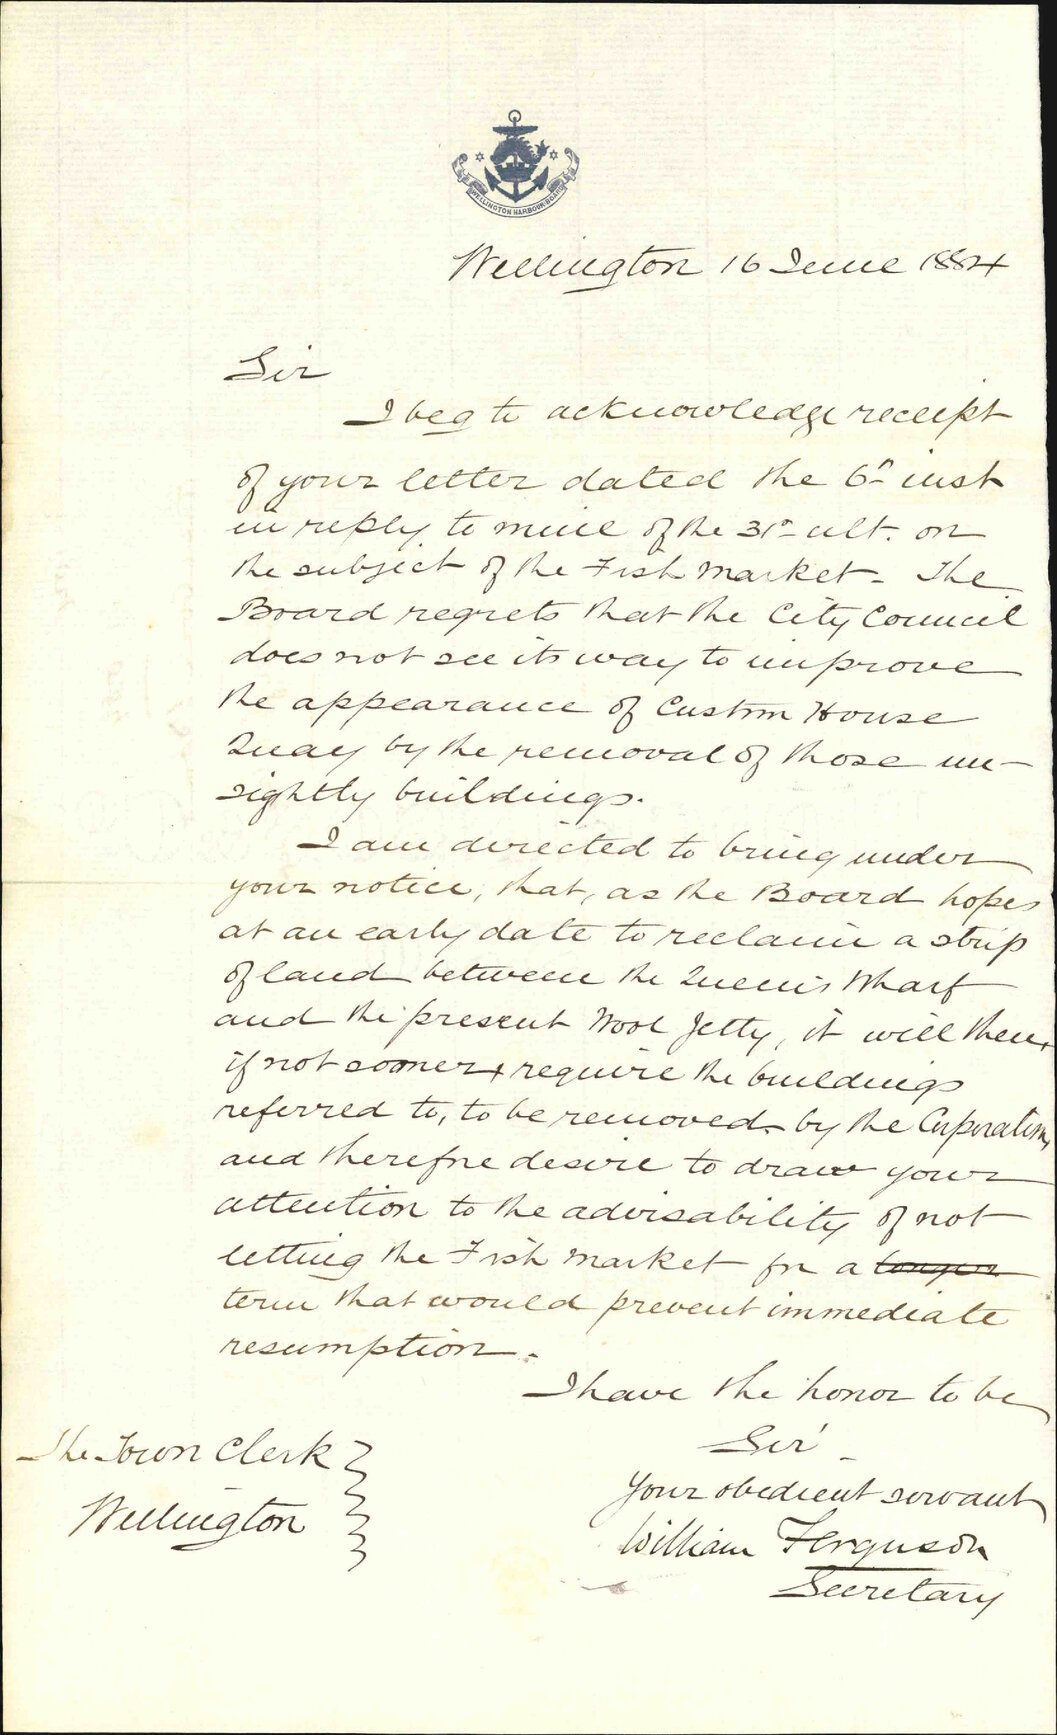 WELLINGTON HARBOUR BOARD
Wellington 16 June 1884
Sir
I beg to acknowledge receipt
of your letter dated the 6th inst
in reply to mine of the 31st ult. on
the subject of the Fish Market. The
Board regrets that the City Council
does not see its way to improve
the appearance of Custom House
Quay by the removal of those un-
sightly buildings.
I am directed to bring under
your notice, that, as the Board hopes
at an early date to reclaim a strip
of land between the Queen's Wharf
and the present Wool Jetty, it will then,
if not sooner, require the buildings
referred to, to be removed by the Corporation,
and therefore desire to draw your
attention to the advisability of not
letting the Fish Market for a longer
term that would prevent immediate
resumption.
I have the honor to be
Sir
Your obedient servant
William Ferguson
Secretary
The Town Clerk
Wellington